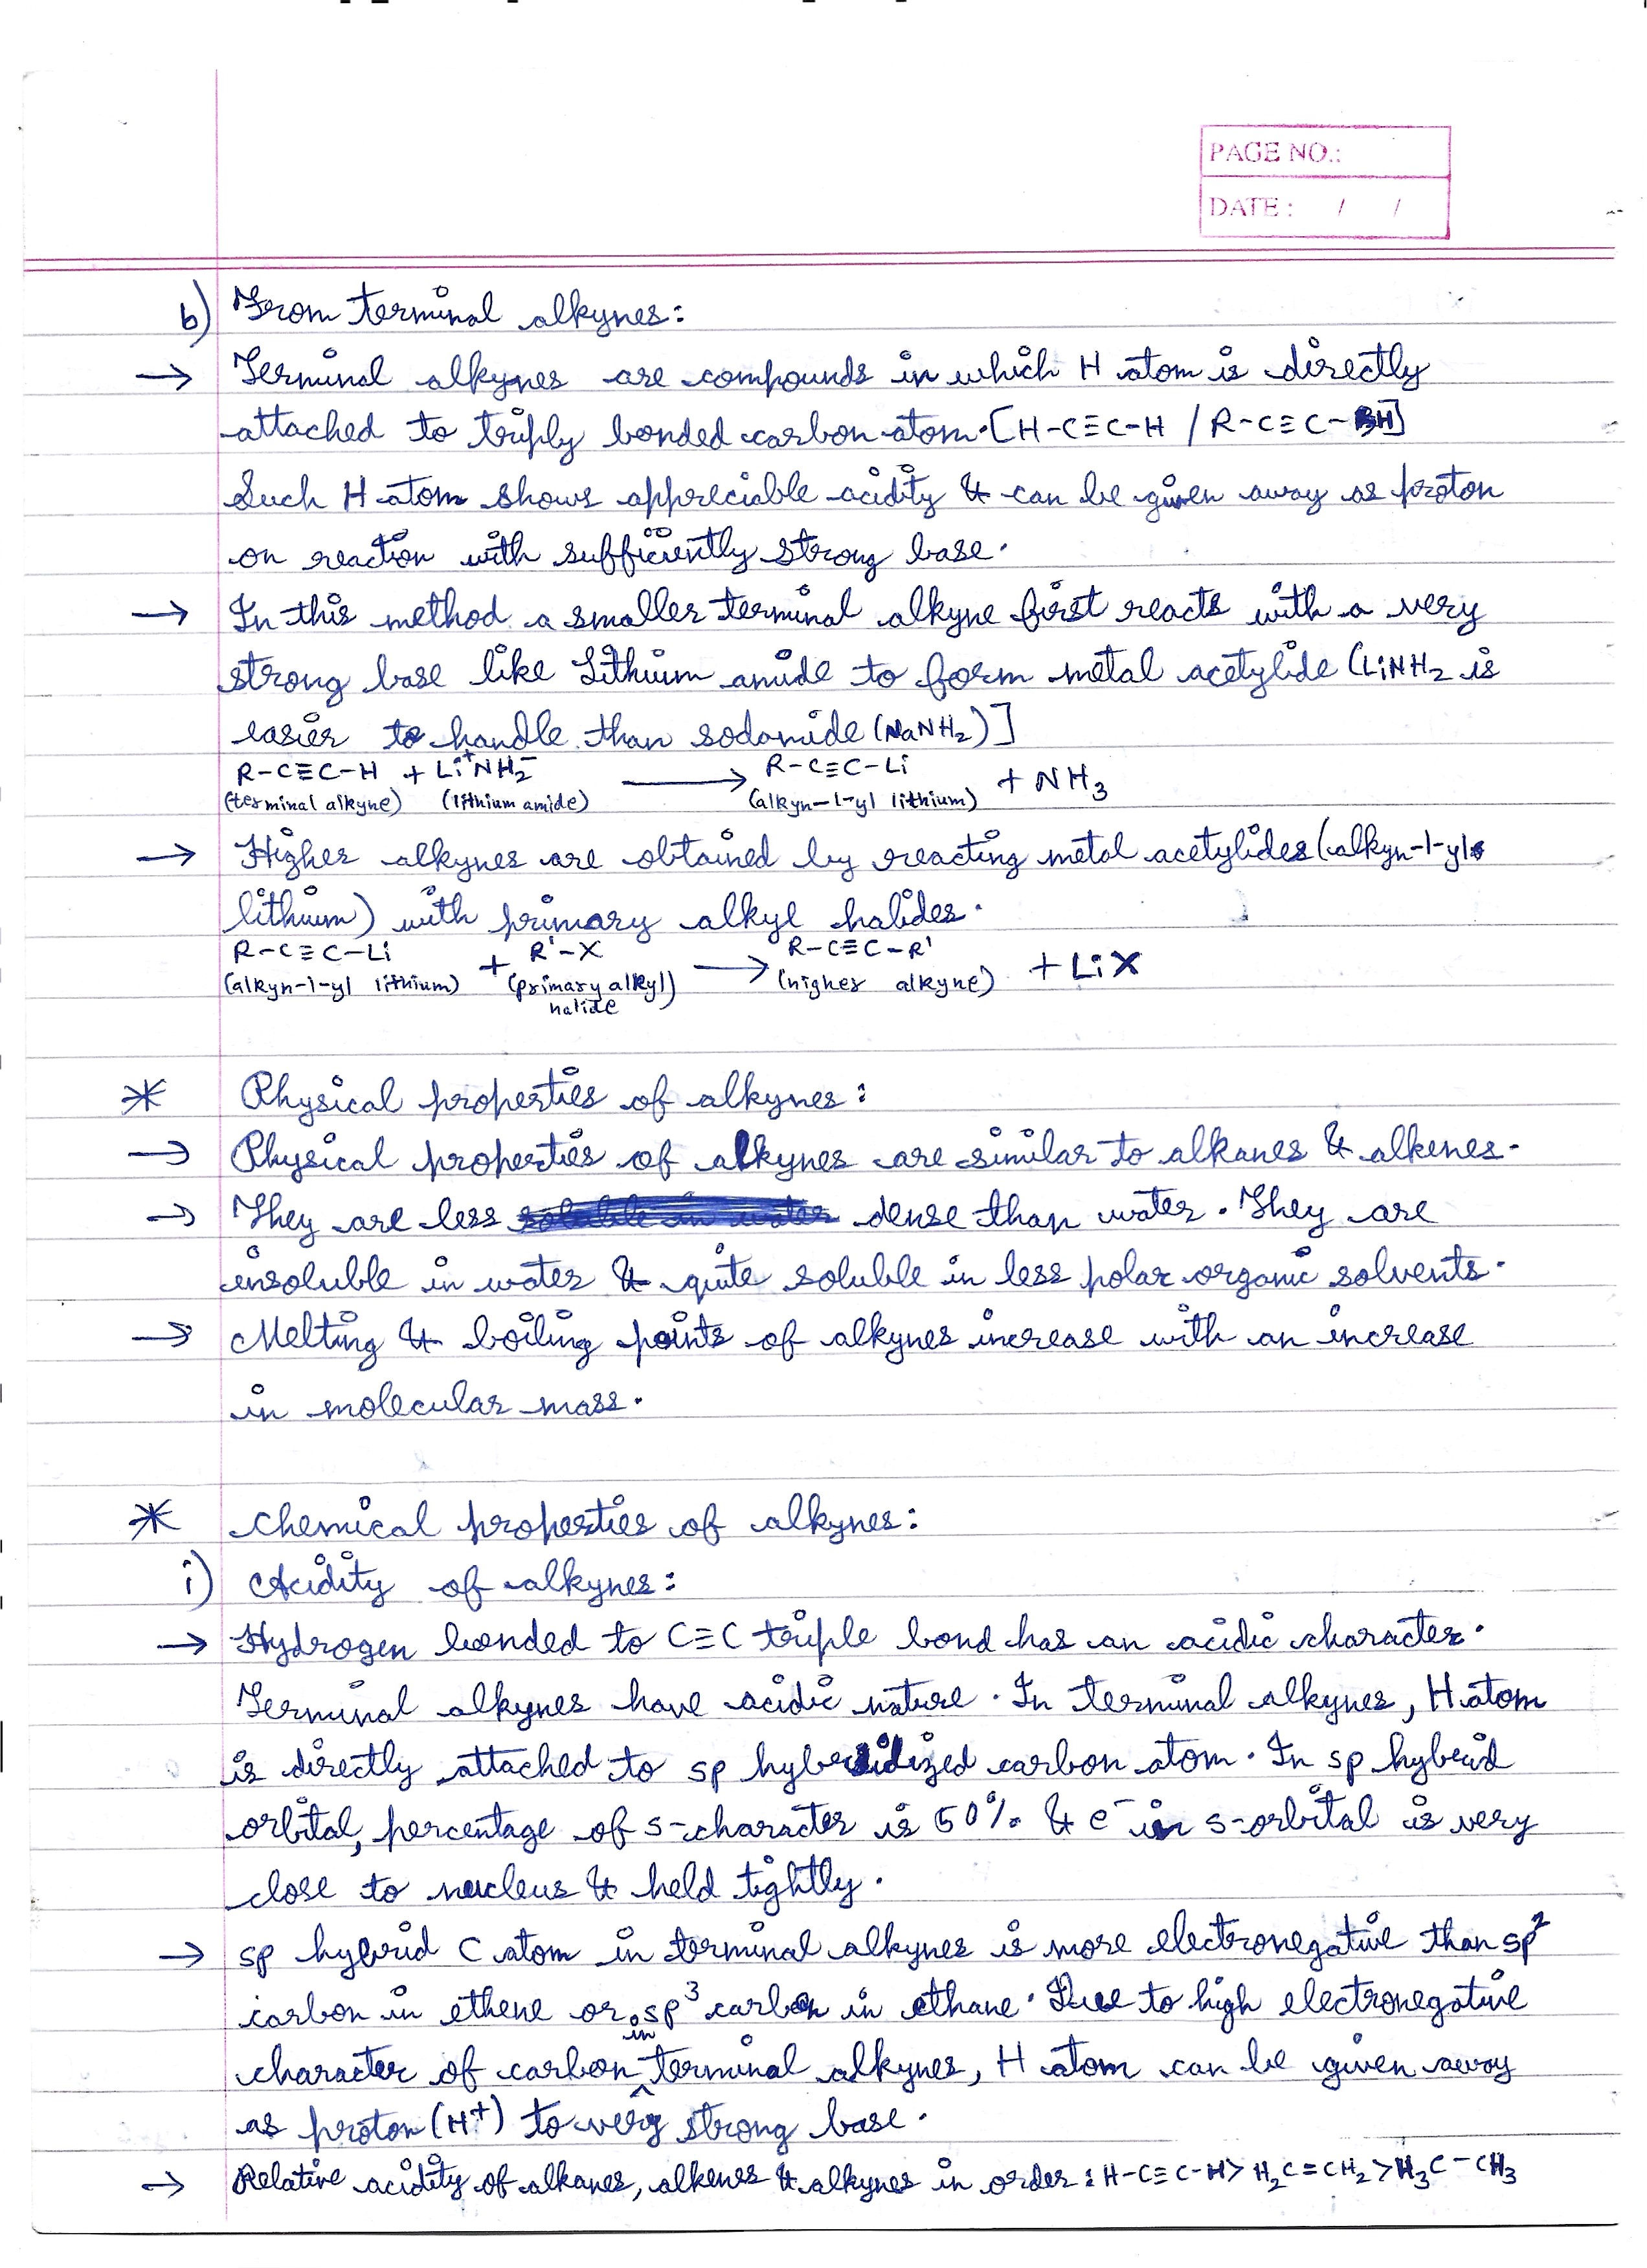 PAGE NO.:
DATE : / /
b) From terminal alkynes:
→ Terminal alkynes are compounds in which H atom is directly
attached to triply bonded carbon atom. [H-C≡C-H / R-C≡C-H]
Such H atom shows appreciable acidity & can be given away as proton
on reaction with sufficiently strong base.
→ In this method a smaller terminal alkyne first reacts with a very
strong base like Lithium amide to form metal acetylide (LiNH₂ is
easier to handle than sodamide (NaNH₂)]
R-C≡C-H + Li⁺NH₂⁻ ⟶ R-C≡C-Li + NH₃
(terminal alkyne) (lithium amide) (alkyn-1-yl lithium)
→ Higher alkynes are obtained by reacting metal acetylides (alkyn-1-yl
lithium) with primary alkyl halides.
R-C≡C-Li + R'-X ⟶ R-C≡C-R' + LiX
(alkyn-1-yl lithium) (primary alkyl) (higher alkyne)
halide
* Physical properties of alkynes:
→ Physical properties of alkynes are similar to alkanes & alkenes.
→ They are less soluble in water dense than water. They are
insoluble in water & quite soluble in less polar organic solvents.
→ Melting & boiling points of alkynes increase with an increase
in molecular mass.
* Chemical properties of alkynes:
i) Acidity of alkynes:
→ Hydrogen bonded to C≡C triple bond has an acidic character.
Terminal alkynes have acidic nature. In terminal alkynes, H atom
is directly attached to sp hybridized carbon atom. In sp hybrid
orbital, percentage of s-character is 50% & e⁻ in s-orbital is very
close to nucleus & held tightly.
→ sp hybrid C atom in terminal alkynes is more electronegative than sp²
carbon in ethene or sp³ carbon in ethane. Due to high electronegative
character of carbon in terminal alkynes, H atom can be given away
as proton (H⁺) to very strong base.
→ Relative acidity of alkanes, alkenes & alkynes in order : H-C≡C-H > H₂C=CH₂ > H₃C-CH₃